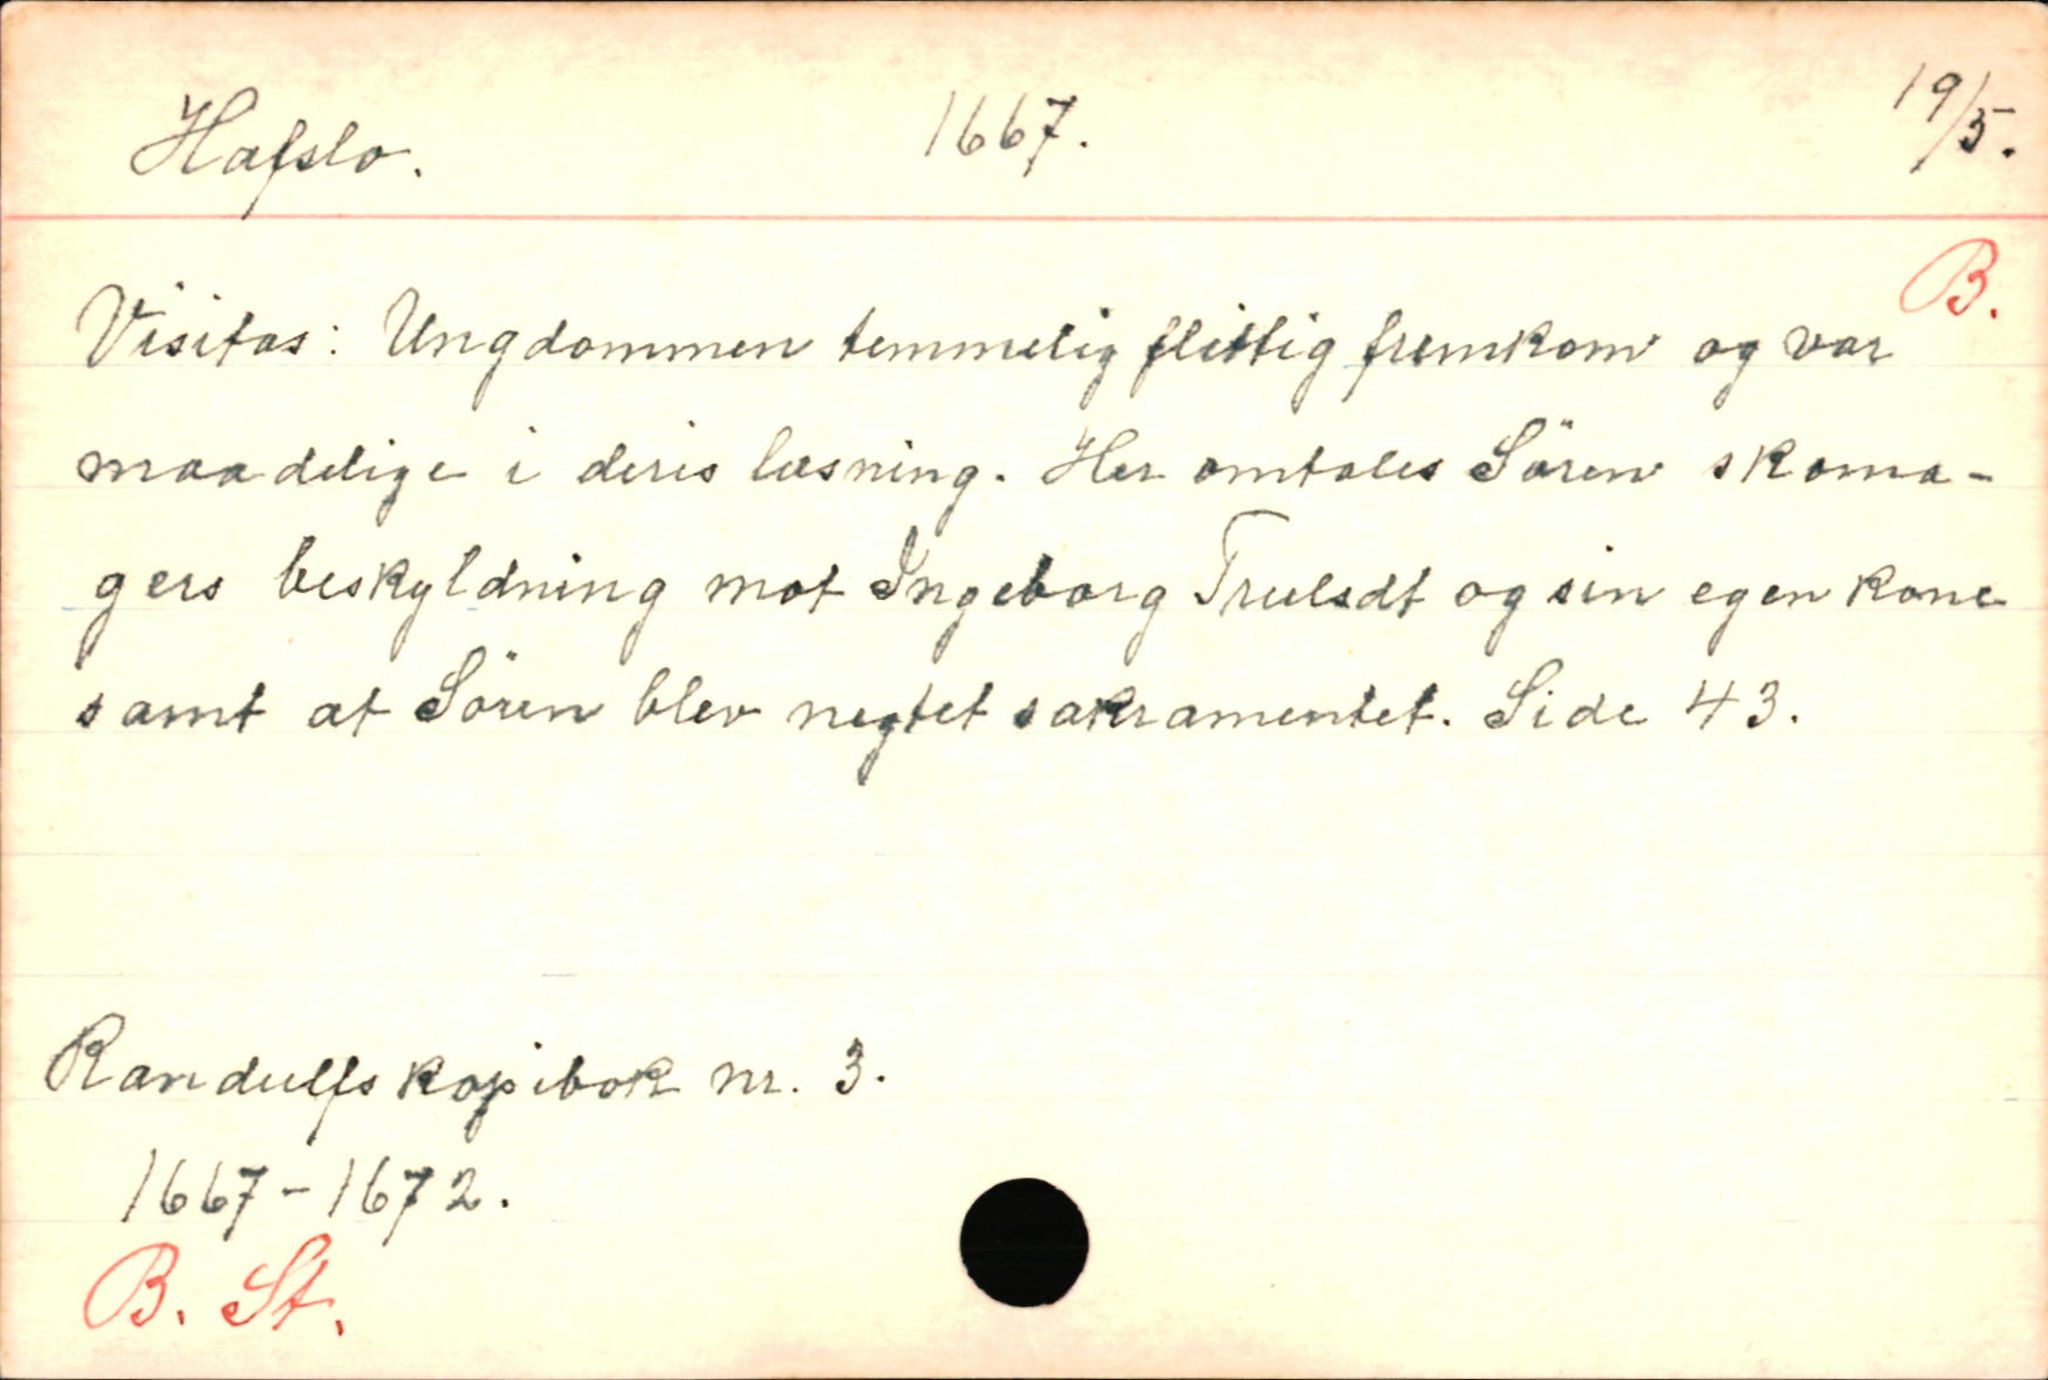 Hafslo. 1667. 19/5.
B.
Visitas: Ungdommen temmelig flittig fremkom og var
maadelige i deris læsning. Her omtales Sören skoma-
gers beskyldning mot Ingeborg Trulsdt og sin egen kone
samt at Sören blev negtet sakramentet. Side 43.
Randulfs kopibok nr. 3.
1667-1672.
B. St.